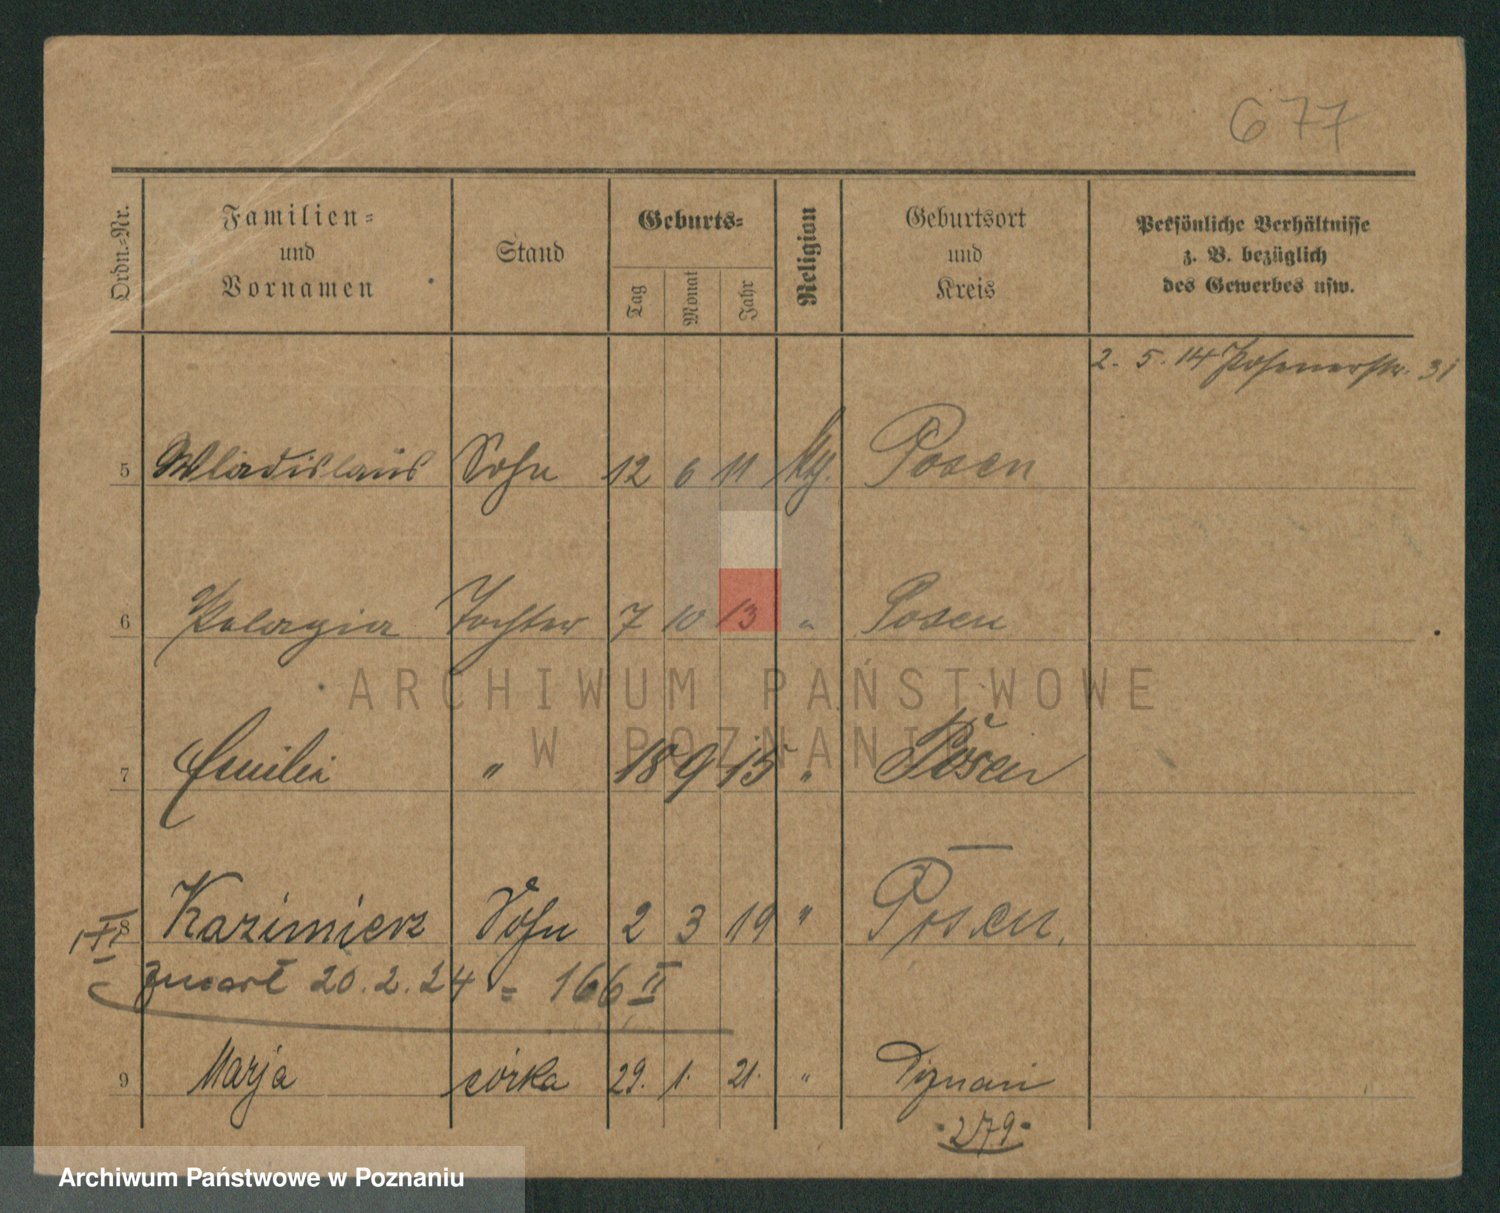 677
Ordn.=Nr.
Familien=
und
Vornamen
Stand
Geburts=
Tag
Monat
Jahr
Religion
Geburtsort
und
Kreis
Persönliche Verhältnisse
z. B. bezüglich
des Gewerbes usw.
2. 5. 14 Posenerstr. 31
5 Wladislaus Sohn 12 6 11 Posen
6 Pelagia Tochter 7 10 13 " Posen
ARCHIWUM PAŃSTWOWE
W POZNANIU
7 Emilie " 18 9 15 " Posen
8 Kazimierz Sohn 2 3 19 " Posen.
zmarł 20.2.24 = 166 II
9 Marja córka 29. 1. 21. " Poznań
279
Archiwum Państwowe w Poznaniu